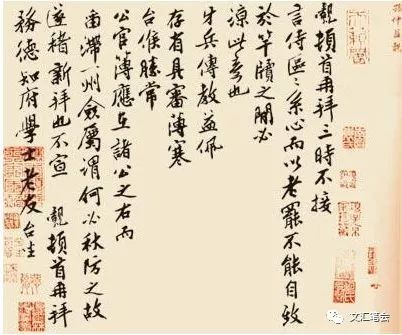 孫仲益覿
覿頓首再拜三時不接
言侍區區系心而以老罷不能自效
於竿牘之間必
諒此意也
牙兵傳教益佩
存省具審薄寒
台候勝常
公官簿應在諸公之右而
留滯一州僉屬謂何必秋防之故
遂稽新拜也不宣 覿頓首再拜
務德知府學士老友台坐
文汇笔会